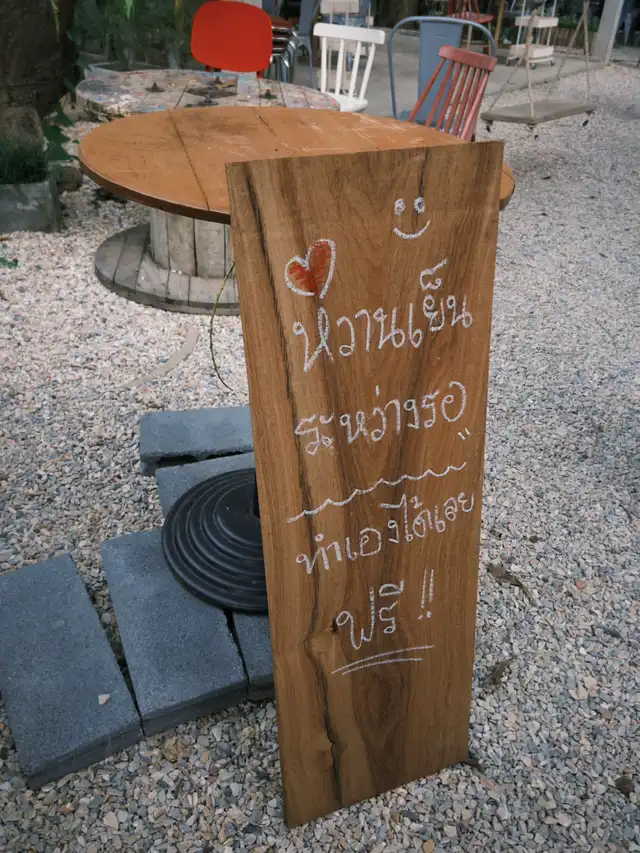 หวานเย็น
ระหว่างรอ
"
ทำเองได้เลย
ฟรี !!